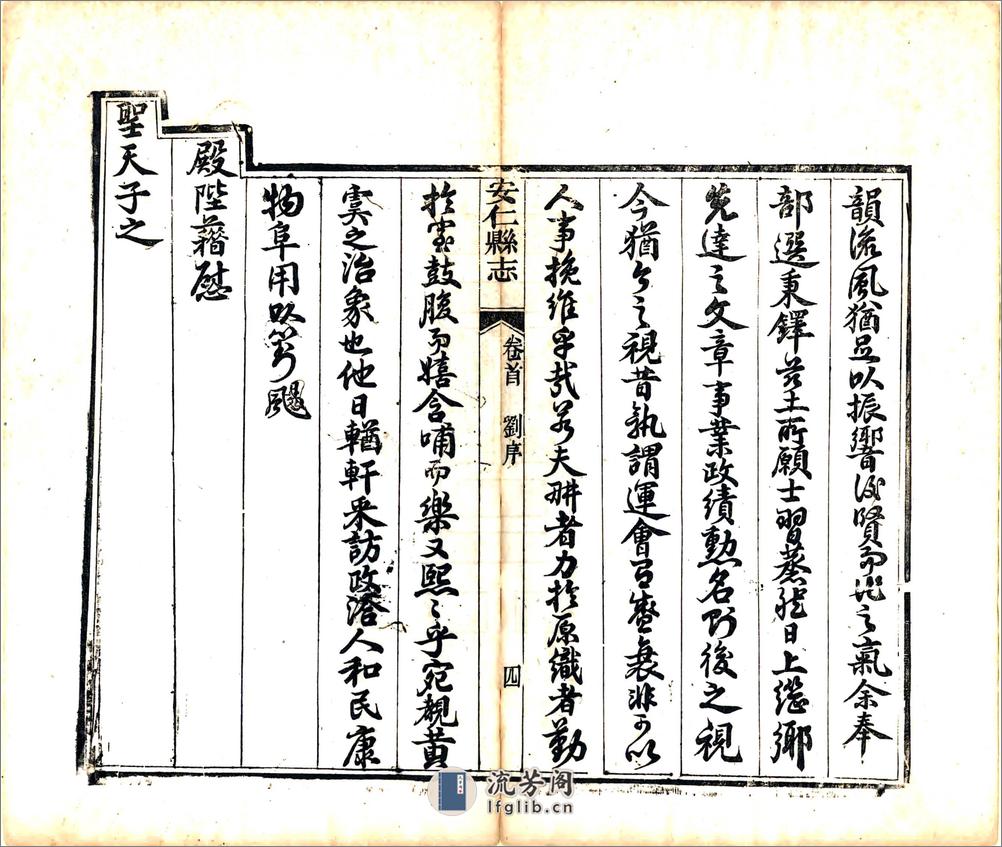 韻流風猶足以振響後賢而作之氣余奉
部選秉鐸茲土所願士習蒸然日上繼鄉
先達之文章事業政績勳名則後之視
今猶今之視昔孰謂運會有盛衰非可以
人事挽維乎哉若夫耕者力於原織者勤
安仁縣志
卷首 劉序
四
於室鼓腹而嬉含哺而樂又熙々乎宛覩黃
虞之治象也他日輶軒釆訪政洽人和民康
物阜用以颺
殿陛藉慰
聖天子之
流芳阁
lfglib.cn